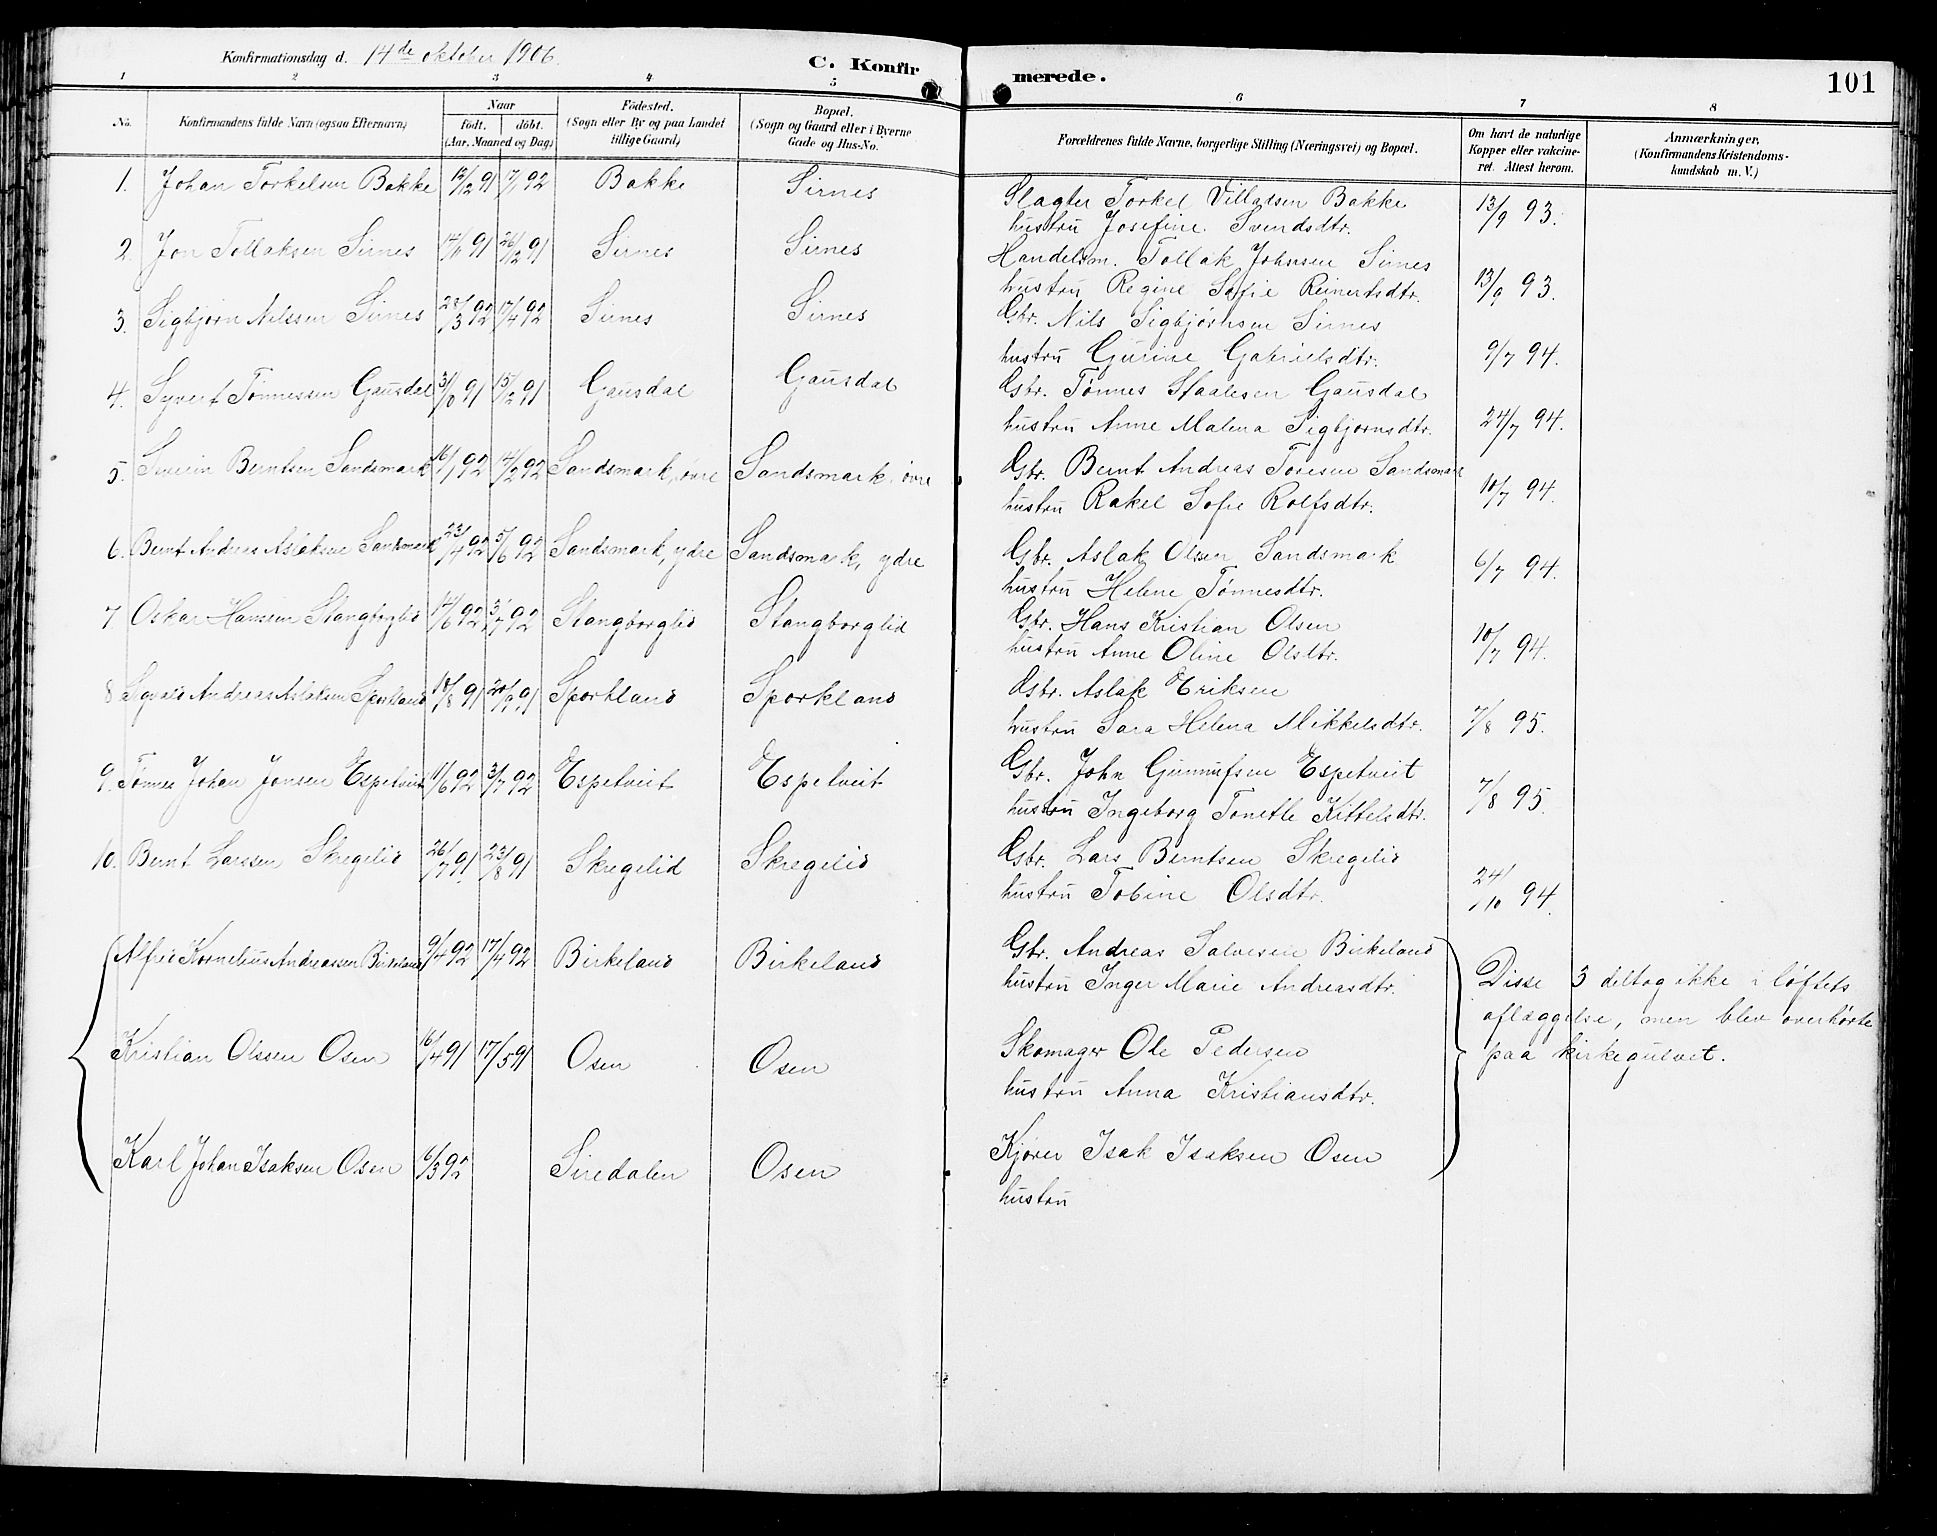 Konfirmationsdag d. 14de oktober 1906.
C. Konfirmerede.
101
1 2 3 4 5 6 7 8
No.
Konfirmandens fulde Navn (ogsaa Efternavn)
Naar
födt. döbt.
(Aar, Maaned og Dag)
Födested.
(Sogn eller By og paa Landet
tillige Gaard)
Bopæl.
(Sogn og Gaard eller i Byerne
Gade og Hus-No.
Forældrenes fulde Navne, borgerlige Stilling (Næringsvei) og Bopæl.
Om havt de naturlige
Kopper eller vakcine-
ret. Attest herom.
Anmærkninger,
(Konfirmandens Kristendoms-
kundskab m. V.)
1. Johan Torkelsen Bakke 12/2 91 17/1 92 Bakke Sirnes Slagter Torkel Villadsen Bakke
hustru Josefine Svendsdtr. 13/9 93.
2. Jon Tollaksen Sirnes 91 26/12 91 Sirnes Sirnes Handelsm. Tollak Johnsen Sirnes
hustru Regine Sofie Reinertsdtr. 13/9 93.
3. Sigbjørn Nilssen Sirnes 20/3 92 17/4 92 Sirnes Sirnes Gbr. Nils Sigbjørnsen Sirnes
hustru Gurine Gabrielsdtr. 9/7 94.
4. Syvert Tønnessen Gausdal 31/10 91 15/12 91 Gausdal Gausdal Gbr. Tønnes Staalesen Gausdal
hustru Anne Malena Sigbjørnsdtr. 24/7 94.
5. Severin Berntsen Sandsmark 16/1 92 14/2 92 Sandsmark, øvre Sandsmark, øvre Gbr. Bernt Andreas Toresen Sandsmark
hustru Rakel Sofie Rolfsdtr. 10/7 94.
6. Bernt Andreas Aslaksen Sandsmark 23/4 92 5/6 92 Sandsmark, ydre Sandsmark, ydre Gbr. Aslak Olsen Sandsmark
hustru Helene Tønnesdtr. 6/7 94.
7 Oskar Hansen Stangborglid 14/6 92 3/7 92 Stangborglid Stangborglid Gbr. Hans Kristian Olsen
hustru Anne Oline Olsdtr. 10/7 94.
8 Sigvald Andreas Aslaksen Sporkland 10/8 91 20/9 91 Sporkland Sporkland Gbr. Aslak Eriksen
hustru Sara Helena Mikkelsdtr. 7/8 95.
9. Tønnes Johan Jonsen Espetveit 11/6 92 3/7 92 Espetveit Espetveit Gbr. John Gunnufsen Espetveit
hustru Ingeborg Tonette Kittelsdtr. 7/8 95.
10. Bernt Larssen Skregelid 26/7 91 23/8 91 Skregelid Skregelid Gbr. Lars Berntsen Skregelid
hustru Tobine Olsdtr. 24/10 94.
Alfred Kornelius Andreassen Birkeland 9/4 92 17/4 92 Birkeland Birkeland Gbr. Andreas Salvesen Birkeland
hustru Inger Marie Andreasdtr.
Disse 3 deltog ikke i løftets
aflæggelse, men blev overhørte
paa kirkegulvet.
Kristian Olssen Osen 16/4 91 17/5 91 Osen Osen Skomager Ole Pedersen
hustru Anna Kristiansdtr.
Karl Johan Isaksen Osen 6/3 92 Siredalen Osen Kjører Isak Isaksen Osen
hustru